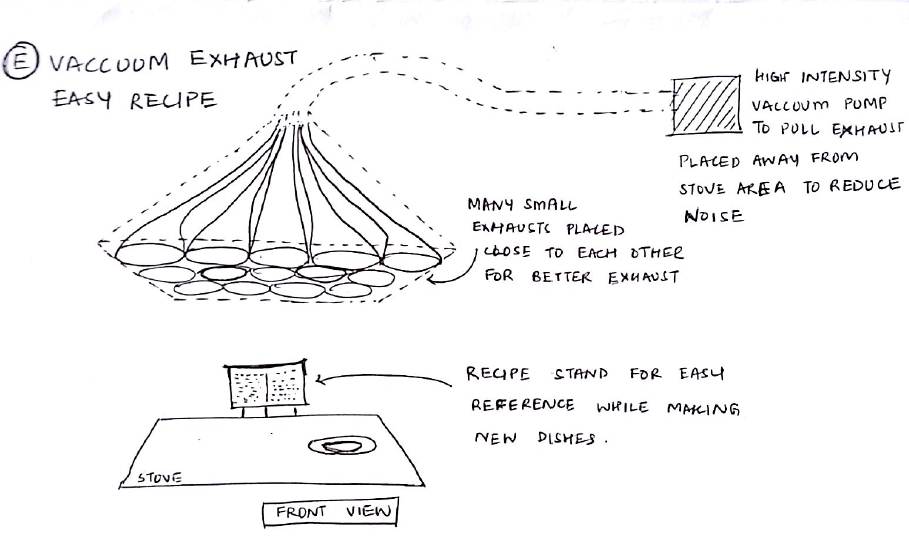 E VACCUUM EXHAUST
EASY RECIPE
HIGH INTENSITY
VACCUUM PUMP
TO PULL EXHAUST
PLACED AWAY FROM
STOVE AREA TO REDUCE
NOISE
MANY SMALL
EXHAUSTS PLACED
CLOSE TO EACH OTHER
FOR BETTER EXHAUST
RECIPE STAND FOR EASY
REFERENCE WHILE MAKING
NEW DISHES.
STOVE
FRONT VIEW